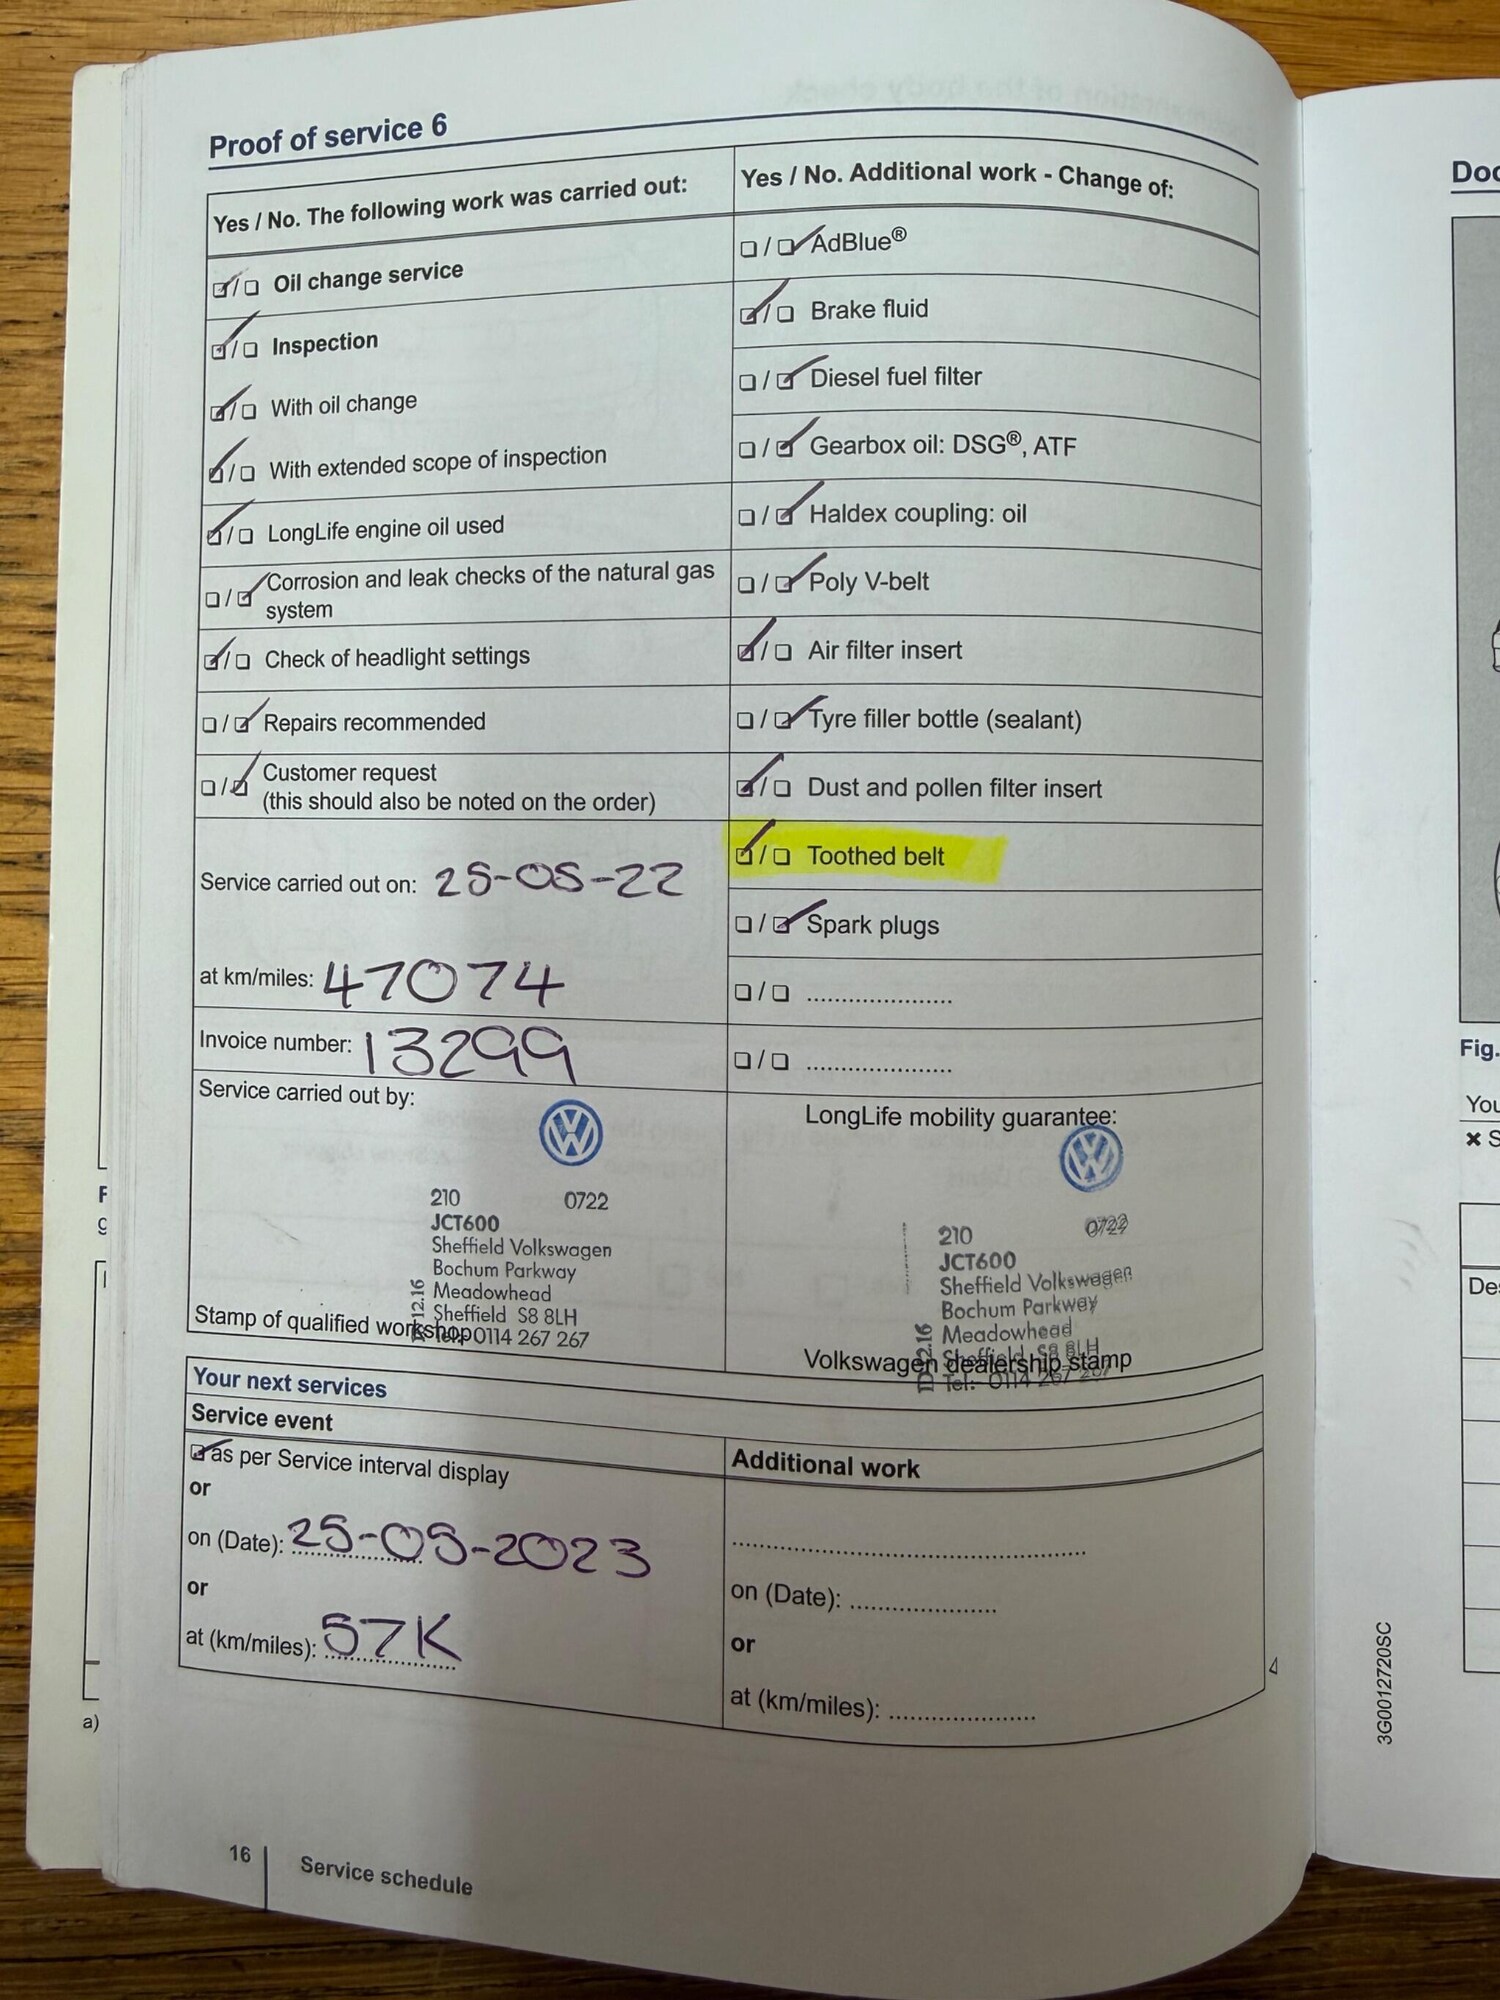 Proof of service 6
Yes / No. The following work was carried out:
Oil change service
Inspection
With oil change
With extended scope of inspection
LongLife engine oil used
Corrosion and leak checks of the natural gas
system
Check of headlight settings
Repairs recommended
Customer request
(this should also be noted on the order)
Service carried out on: 25-05-22
at km/miles: 47074
Invoice number: 13299
Service carried out by:
210 0722
JCT600
Sheffield Volkswagen
Bochum Parkway
Meadowhead
Sheffield S8 8LH
Tel: 0114 267 267
12.16
Stamp of qualified workshop
Yes / No. Additional work - Change of:
AdBlue®
Brake fluid
Diesel fuel filter
Gearbox oil: DSG®, ATF
Haldex coupling: oil
Poly V-belt
Air filter insert
Tyre filler bottle (sealant)
Dust and pollen filter insert
Toothed belt
Spark plugs
LongLife mobility guarantee:
210 0722
JCT600
Sheffield Volkswagen
Bochum Parkway
Meadowhead
Sheffield S8 8LH
Tel:- 0114 267 267
Volkswagen dealership stamp
Your next services
Service event
as per Service interval display
or
on (Date): 25-05-2023
or
at (km/miles): 57K
Additional work
on (Date):
or
at (km/miles):
16
Service schedule
a)
Fig.
3G0012720SC